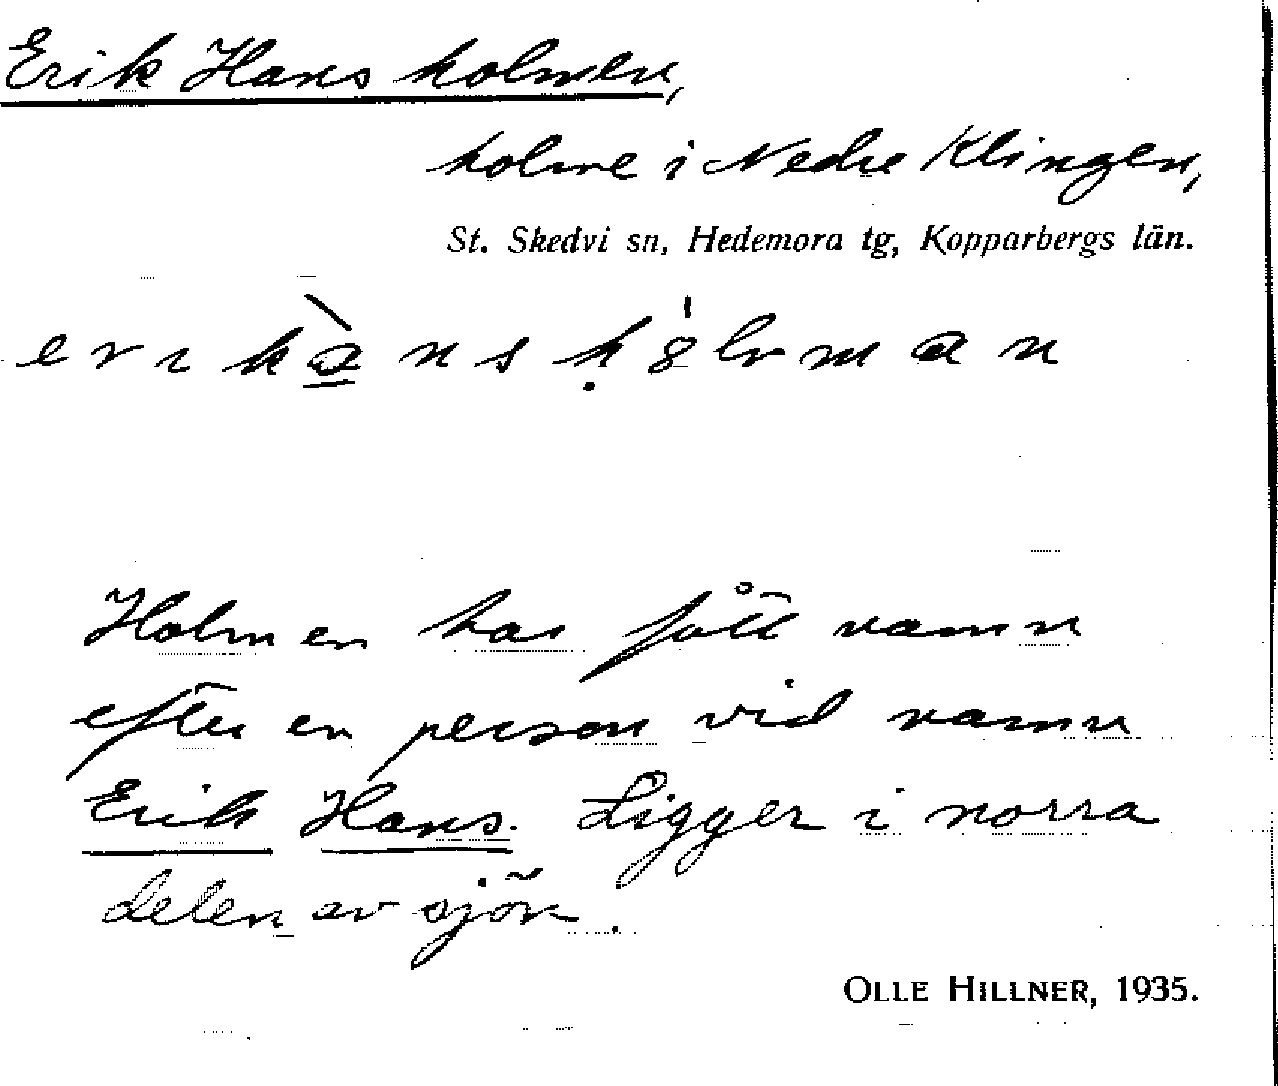 Erik Hans holmen,
holme i Nedre Klingen,
St. Skedvi sn, Hedemora tg, Kopparbergs län.
Holmen har fått namn
efter en person vid namn
Erik Hans. Ligger i norra
delen av sjön.
OLLE HILLNER, 1935.